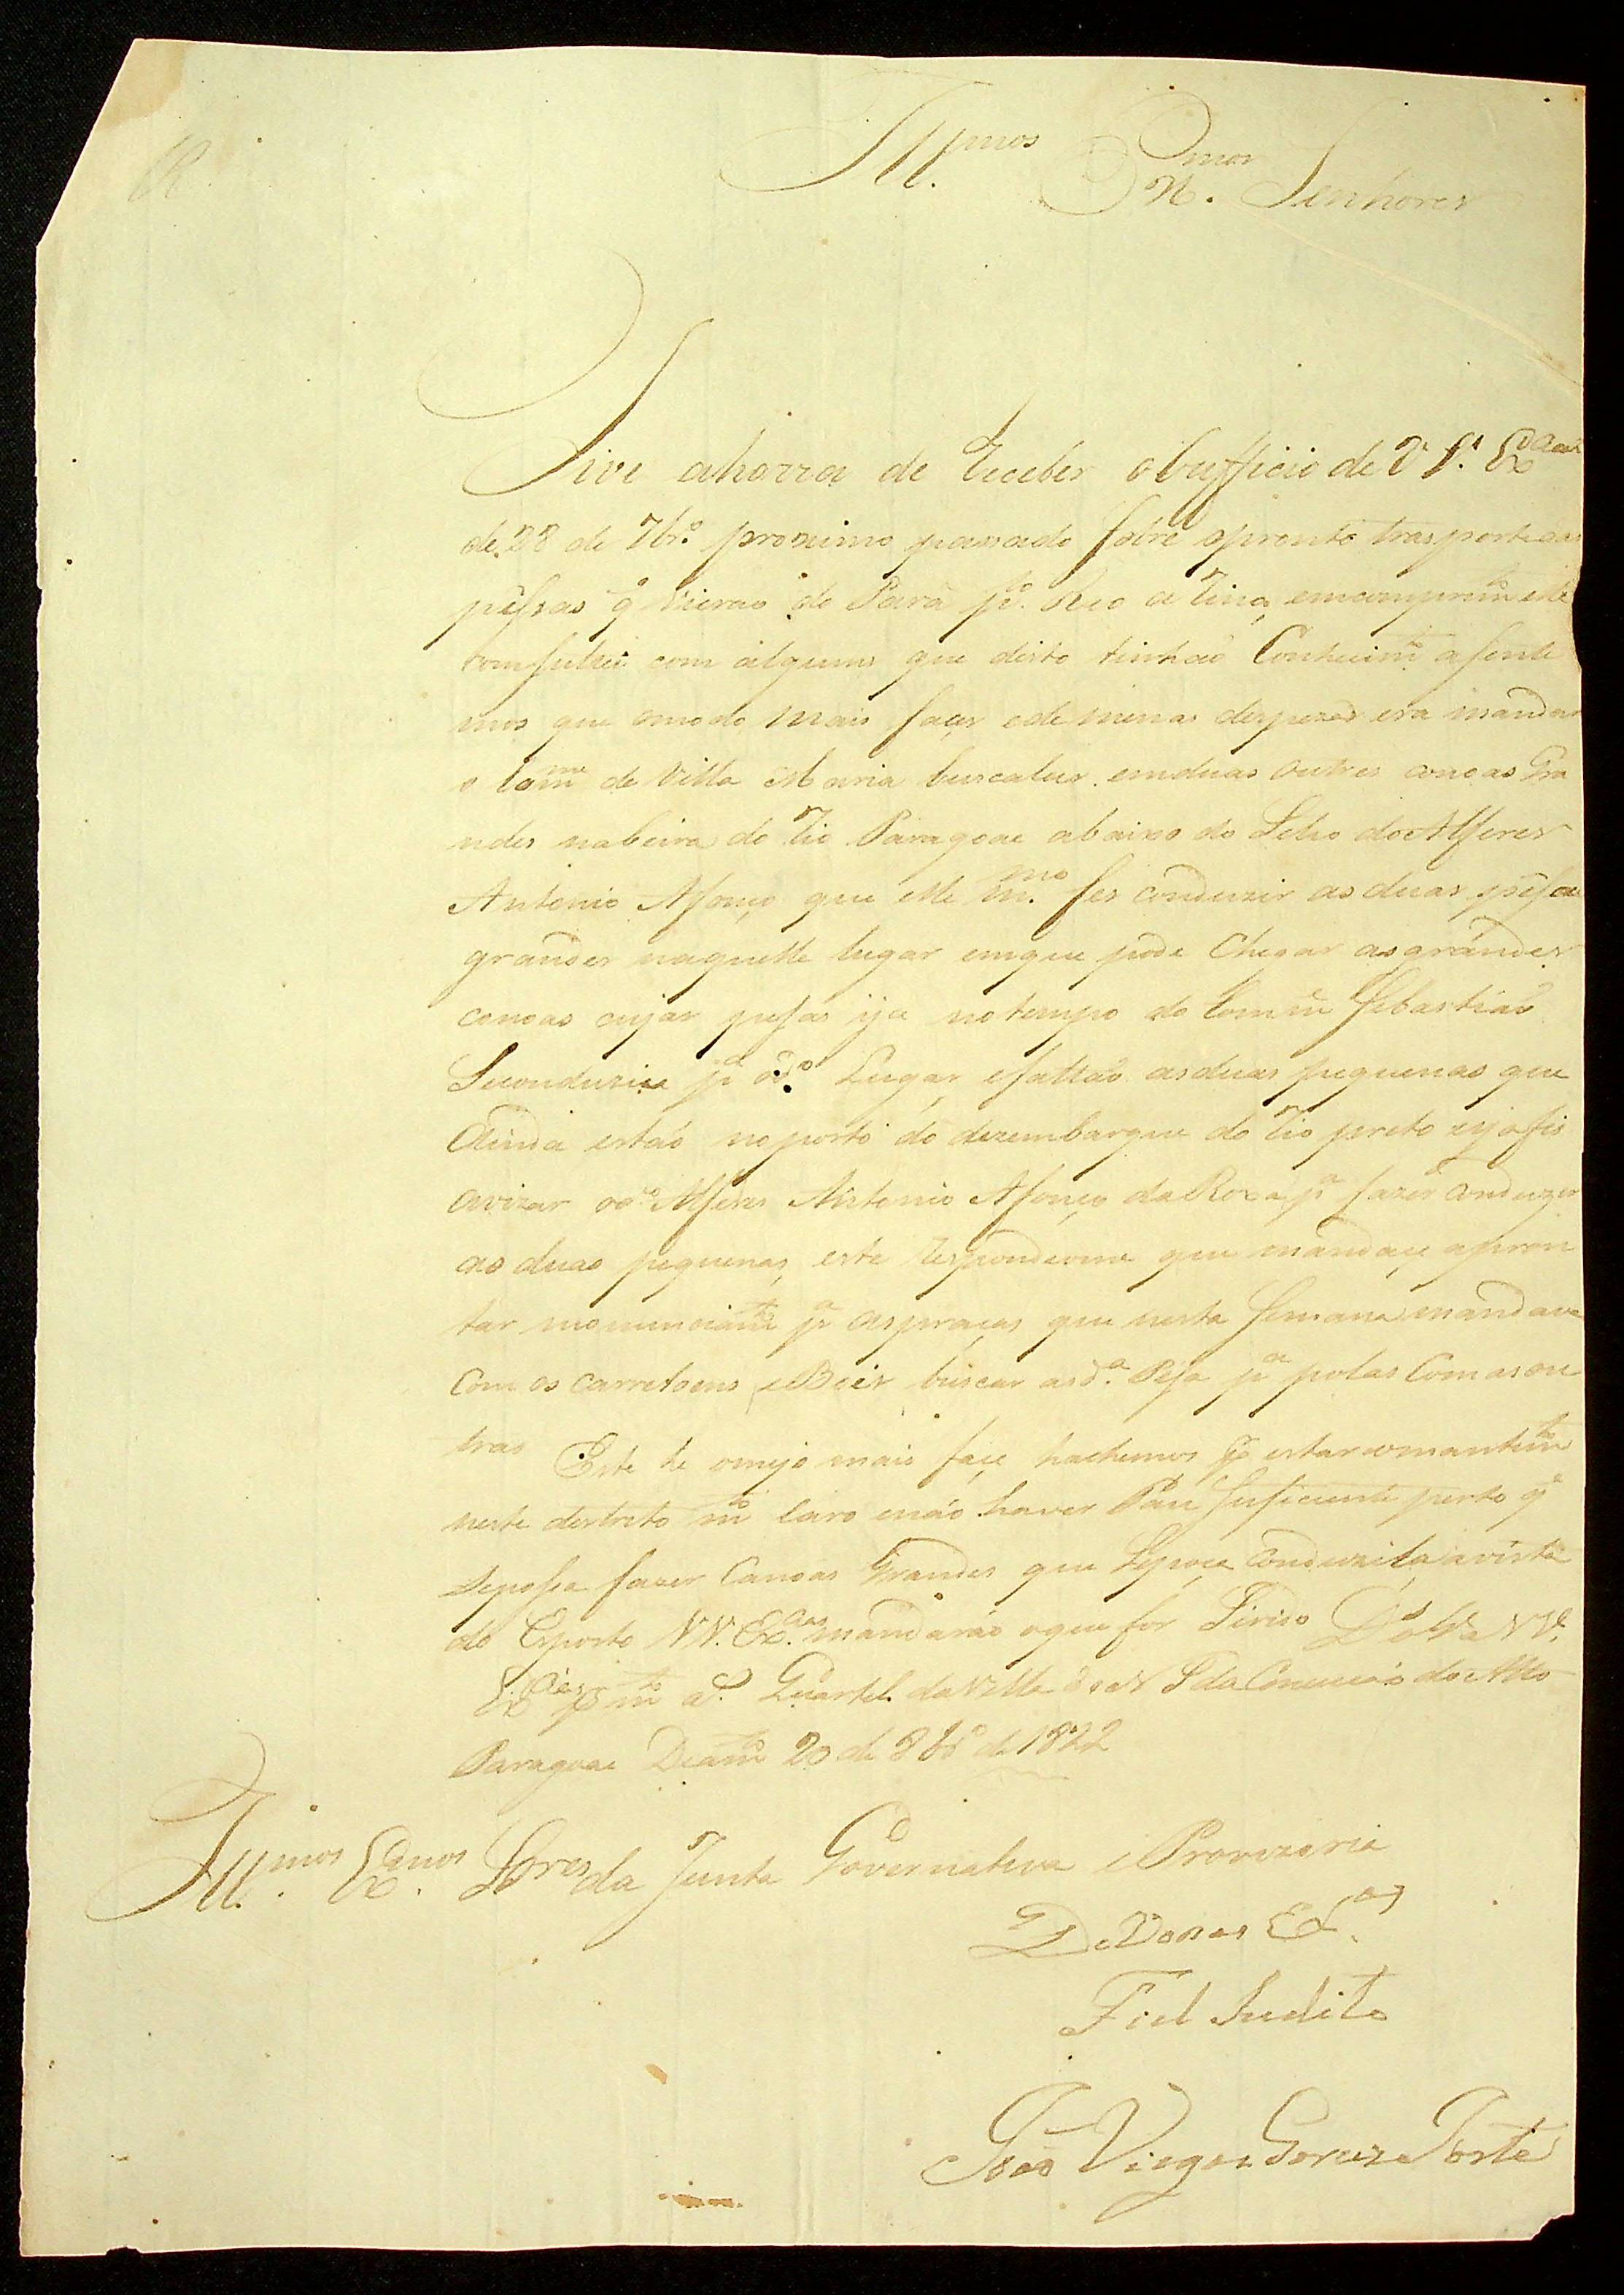 Ill.mos Ex.mos Senhores
Tive ahorra de Receber o bufficio de V. S. Ex.cias
de 28 de 7br.o proximo passado sobre apronto trasporte das
pessas q vierao do Pará p.lo Rio
comsultei com alguns que disto tinhaõ Conhecim.to asente
mos que omodo mais façer ede menas despezas era mandar
o Com.me de Villa Maria buscalas emduas outres canoas Gra
ndes nabeira do Rio Paragoae abaixo do Sitio do Alferes
Antonio Afonço que elle m.mo fes conduzir as duas pesas
grandes naquelle lugar emque pode Chegar as grandes
canoas cujas pesas ja notempo do Com.me Sebastiaõ
Seconduzia p.a od.o Lugar, efaltaõ asduas pequenas que
Ainda estaõ noporto do dezembarque do Rio preto eja fis
avizar od.o Alferes Antonio Afonço da Roza p.a fazer conduzir
as duas pequenas, este respondeome que mandaçe apron
tar p.a aspraças que nesta Semana mandava
Com os carretoens e Bois buscar asd.a Pesa p.a polas Comas ou
tras Este he omejo mais façe hachemos p.r estar omantim.to
neste destreto m.to caro enaõ haver Pau Suficiente perto q
Seposa fazer Canoas Grandes que Sepoça conduzila, avista
do Exposto VV. Ex.cias mandaráo oque for Sirviso D.s G.de a VV.
Ex.cias p.r m.to a.s Quartel da Villa de N S da Conceicaõ do Alto
Paragoae Deam.to 20 de 8br.o de 1822
Ill.mos Ex.mos Snres da Junta Governativa e Provizoria
De Vossas Ex.as
Fiel Sudito
João Viegas Forte